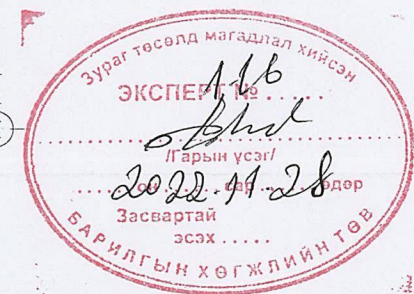 Зураг төсөлд магадлал хийсэн
ЭКСПЕРТ № 116
/Гарын үсэг/
2022.11.28
..... он ..... сар ..... өдөр
Засвартай
эсэх .....
БАРИЛГЫН ХӨГЖЛИЙН ТӨВ